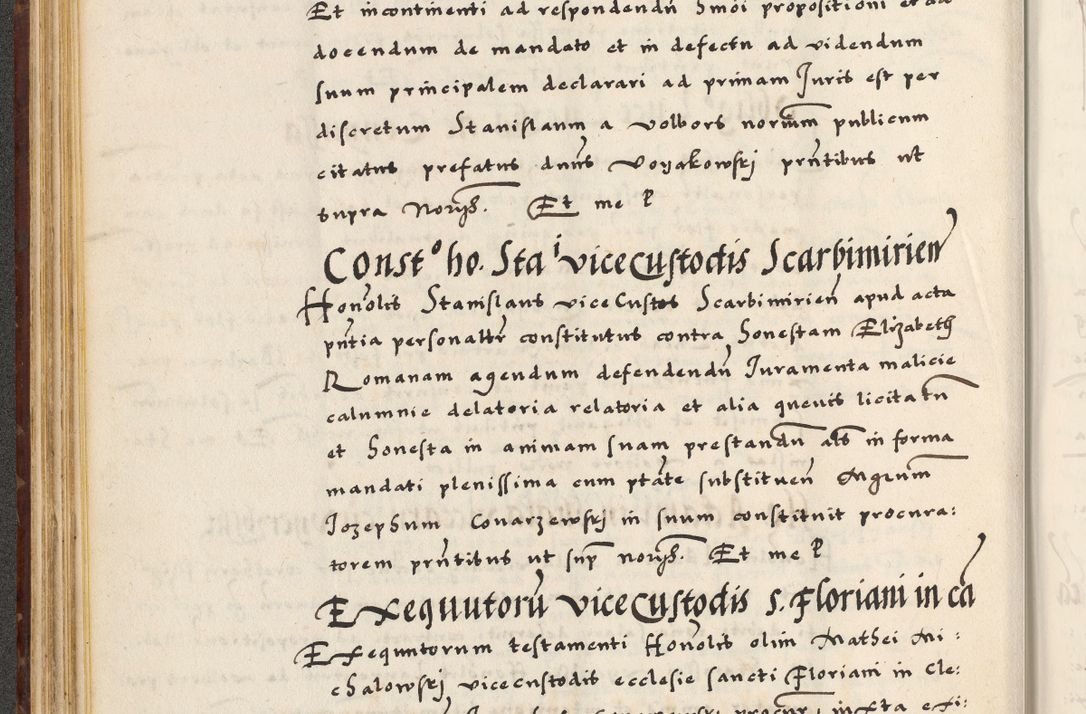 Et incontinenti ad respondendũ Hmõi propositioni et ad
docendum de mandato et in defectu ad videndum
suum principalem declarari ad primam Juris est per
discretum Stanislaum a Volbors norium publicum
citatus prefatus dnus Voyakowskj prñtibus ut
supra Norys. Et me P
Const⁰ ho. Staⁱ viceCustodis Scarbimirieñ
Honolis Stanislaus viceCustos Scarbimirieñ apud acta
pñtia personalitr constitutus contra Honestam Elizabeth
Romanam agendum defendendũ Juramenta malicie
calumnie delatoria relatoria et alia quevis licita tñ
et Honesta in animam suam prestandũ als in forma
mandati plenissima cum ptate substitueñ Mgrum
Jozephum Conarzewskj in suum constituit procura:
torem prñtibus ut sup norys. Et me P
Exequutorũ viceCustodis s. Floriani in cã
Exequutorum testamenti Honolis olim Mathei Mi:
chalowskj vicecustodis ecclesie sancti Floriani in Cle: